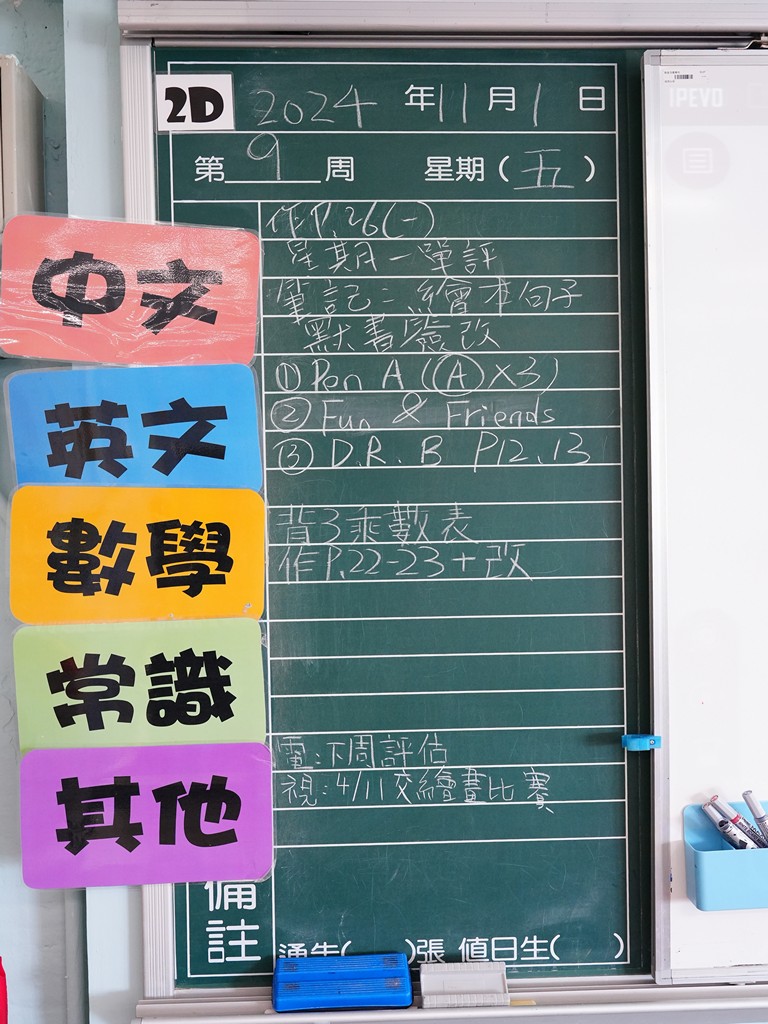 2D 2024 年 11 月 1 日
第 9 周 星期(五)
IPEVO
中文
作P.26(一)
星期一單評
筆記:繪本句子
默書簽改
英文
① Pen A (Ⓐ×3)
② Fun & Friends
③ D.R.B P12.13
數學
背3乘數表
作P.22-23+改
常識
其他
電:下周評估
視:4/11交繪畫比賽
備註
通告( )張 值日生( )